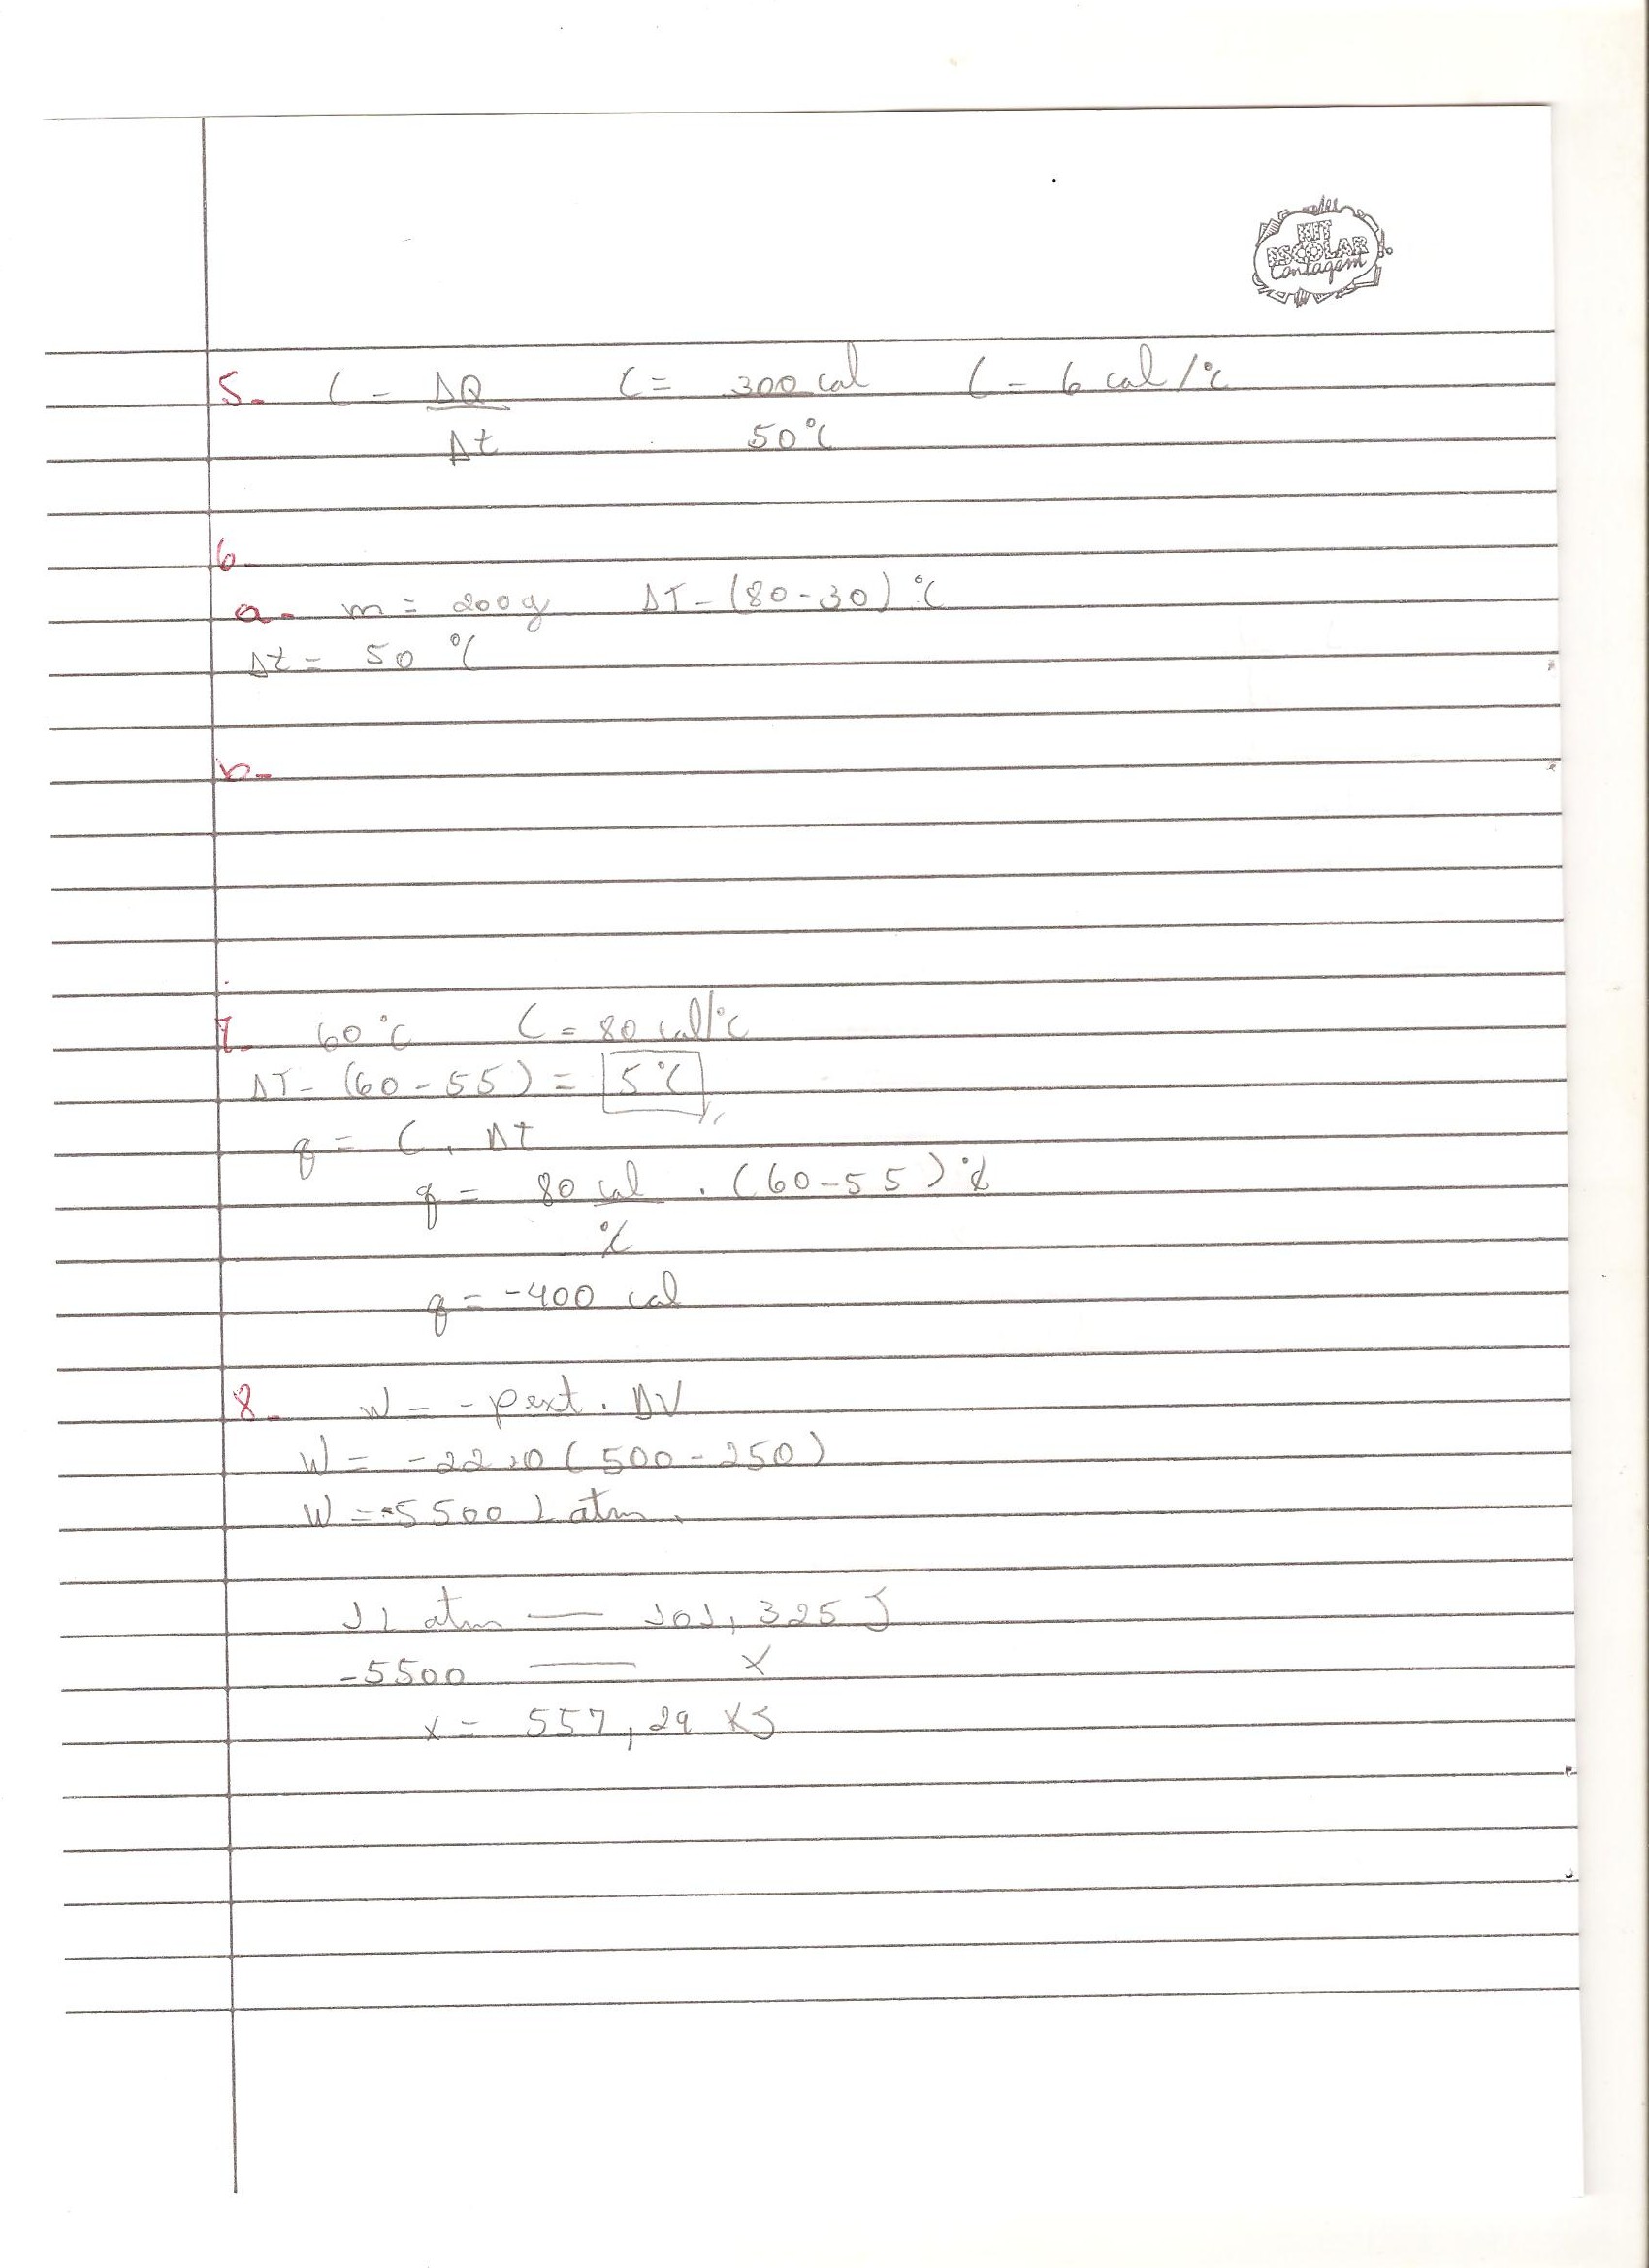 KIT
ESCOLAR
Contagem
5- C = ΔQ C = 300 cal C = 6 cal/°C
Δt 50°C
6-
a- m = 200g ΔT = (80-30) °C
Δt = 50 °C
b-
7- 60°C C = 80 cal/°C
ΔT = (60-55) = 5°C
q = C . Δt
q = 80 cal . (60-55) °C
°C
q = -400 cal
8- W = -pext . ΔV
W = -22,0 (500-250)
W = -5500 L atm.
1 L atm — 101,325 J
-5500 — X
x = 557,29 KJ